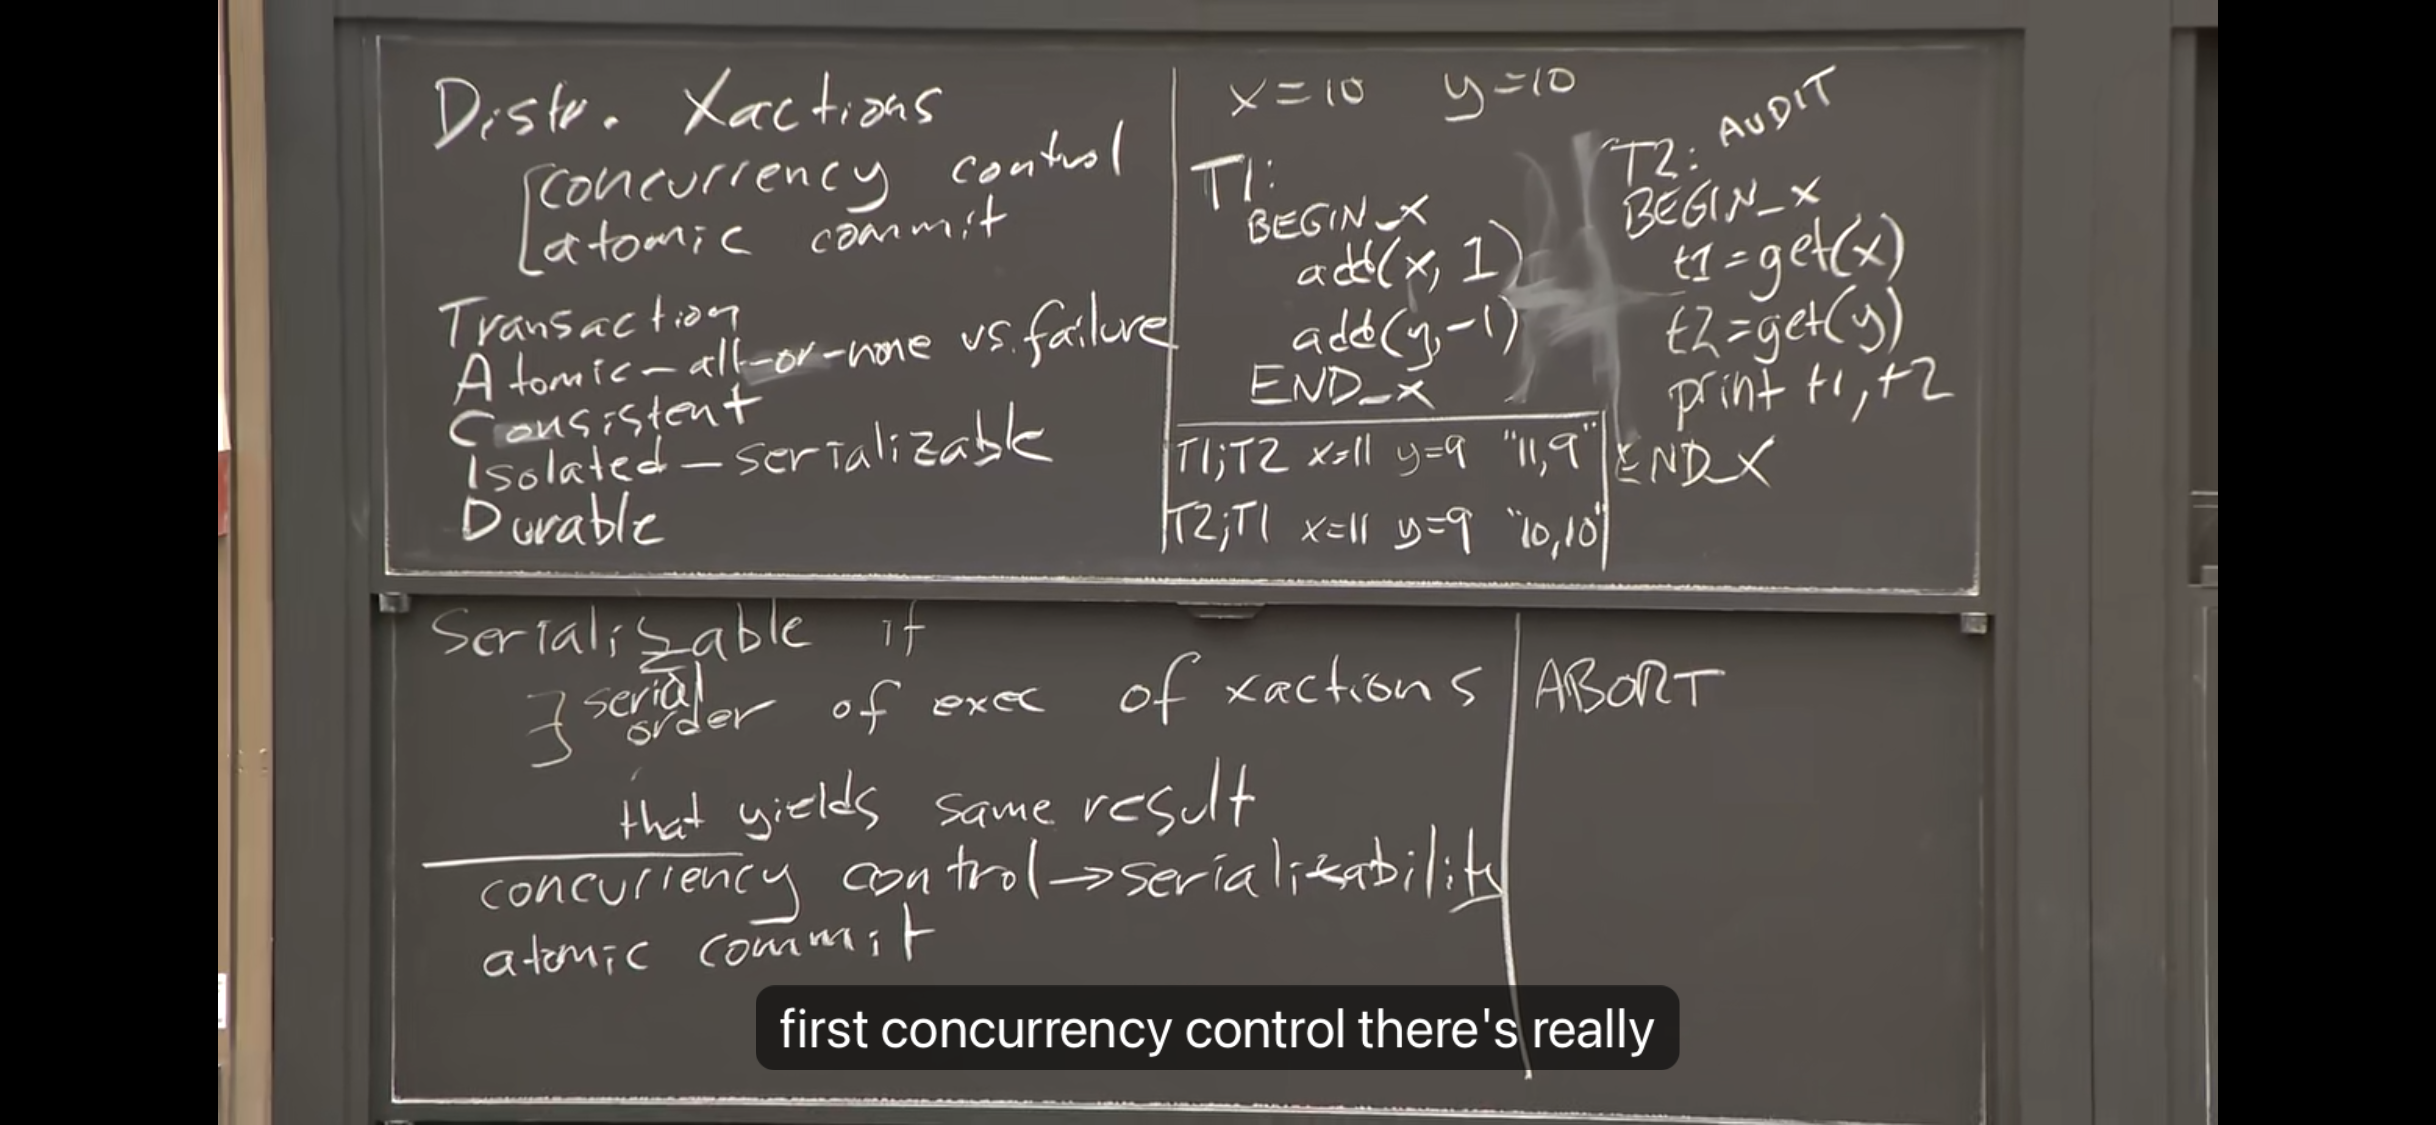 Distr. Xactions
concurrency control
atomic commit
Transaction
Atomic - all-or-none vs. failure
Consistent
Isolated - serializable
Durable
x=10 y=10
T1:
BEGIN_X
add(x, 1)
add(y, -1)
END_X
T2: AUDIT
BEGIN_X
t1=get(x)
t2=get(y)
print t1, t2
END_X
T1;T2 x=11 y=9 "11,9"
T2;T1 x=11 y=9 "10,10"
Serializable if
∃ serial order of exec of xactions
that yields same result
concurrency control → serializability
atomic commit
ABORT
first concurrency control there's really